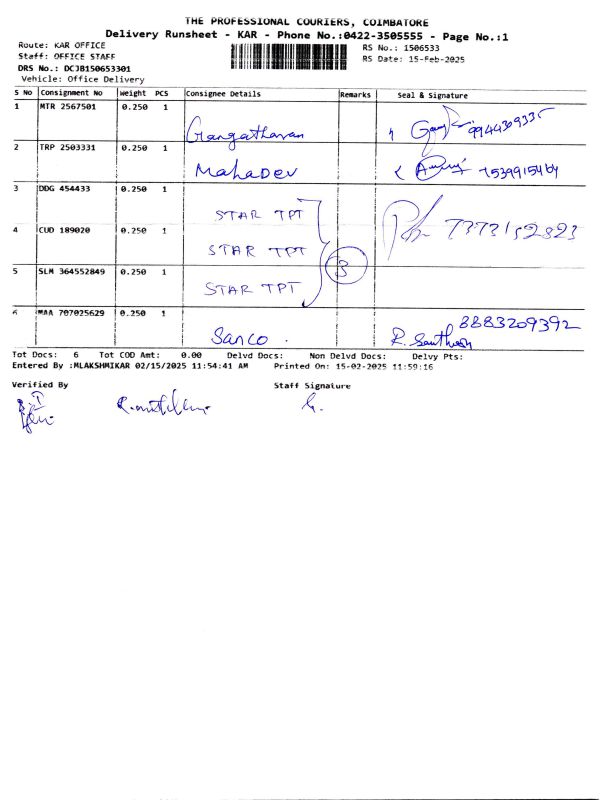 THE PROFESSIONAL COURIERS, COIMBATORE
Delivery Runsheet - KAR - Phone No.:0422-3505555 - Page No.:1
Route: KAR OFFICE RS No.: 1506533
Staff: OFFICE STAFF RS Date: 15-Feb-2025
DRS No.: DCJB150653301
Vehicle: Office Delivery
S No Consignment No Weight PCS Consignee Details Remarks Seal & Signature
1 MTR 2567501 0.250 1
Gangatharan 9944309335
2 TRP 2503331 0.250 1
Mahadev 7539915464
3 DDG 454433 0.250 1
STAR TPT 7373152823
4 CUD 189020 0.250 1
STAR TPT
3
5 SLM 364552849 0.250 1
STAR TPT
6 MAA 707025629 0.250 1
8883209392
Sanco. R. Santhosh
Tot Docs: 6 Tot COD Amt: 0.00 Delvd Docs: Non Delvd Docs: Delvy Pts:
Entered By :MLAKSHMIKAR 02/15/2025 11:54:41 AM Printed On: 15-02-2025 11:59:16
Verified By Staff Signature